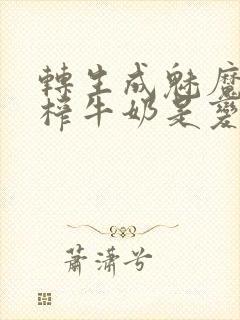 轉生成魅魔
榨牛奶是變
蕭瀟兮